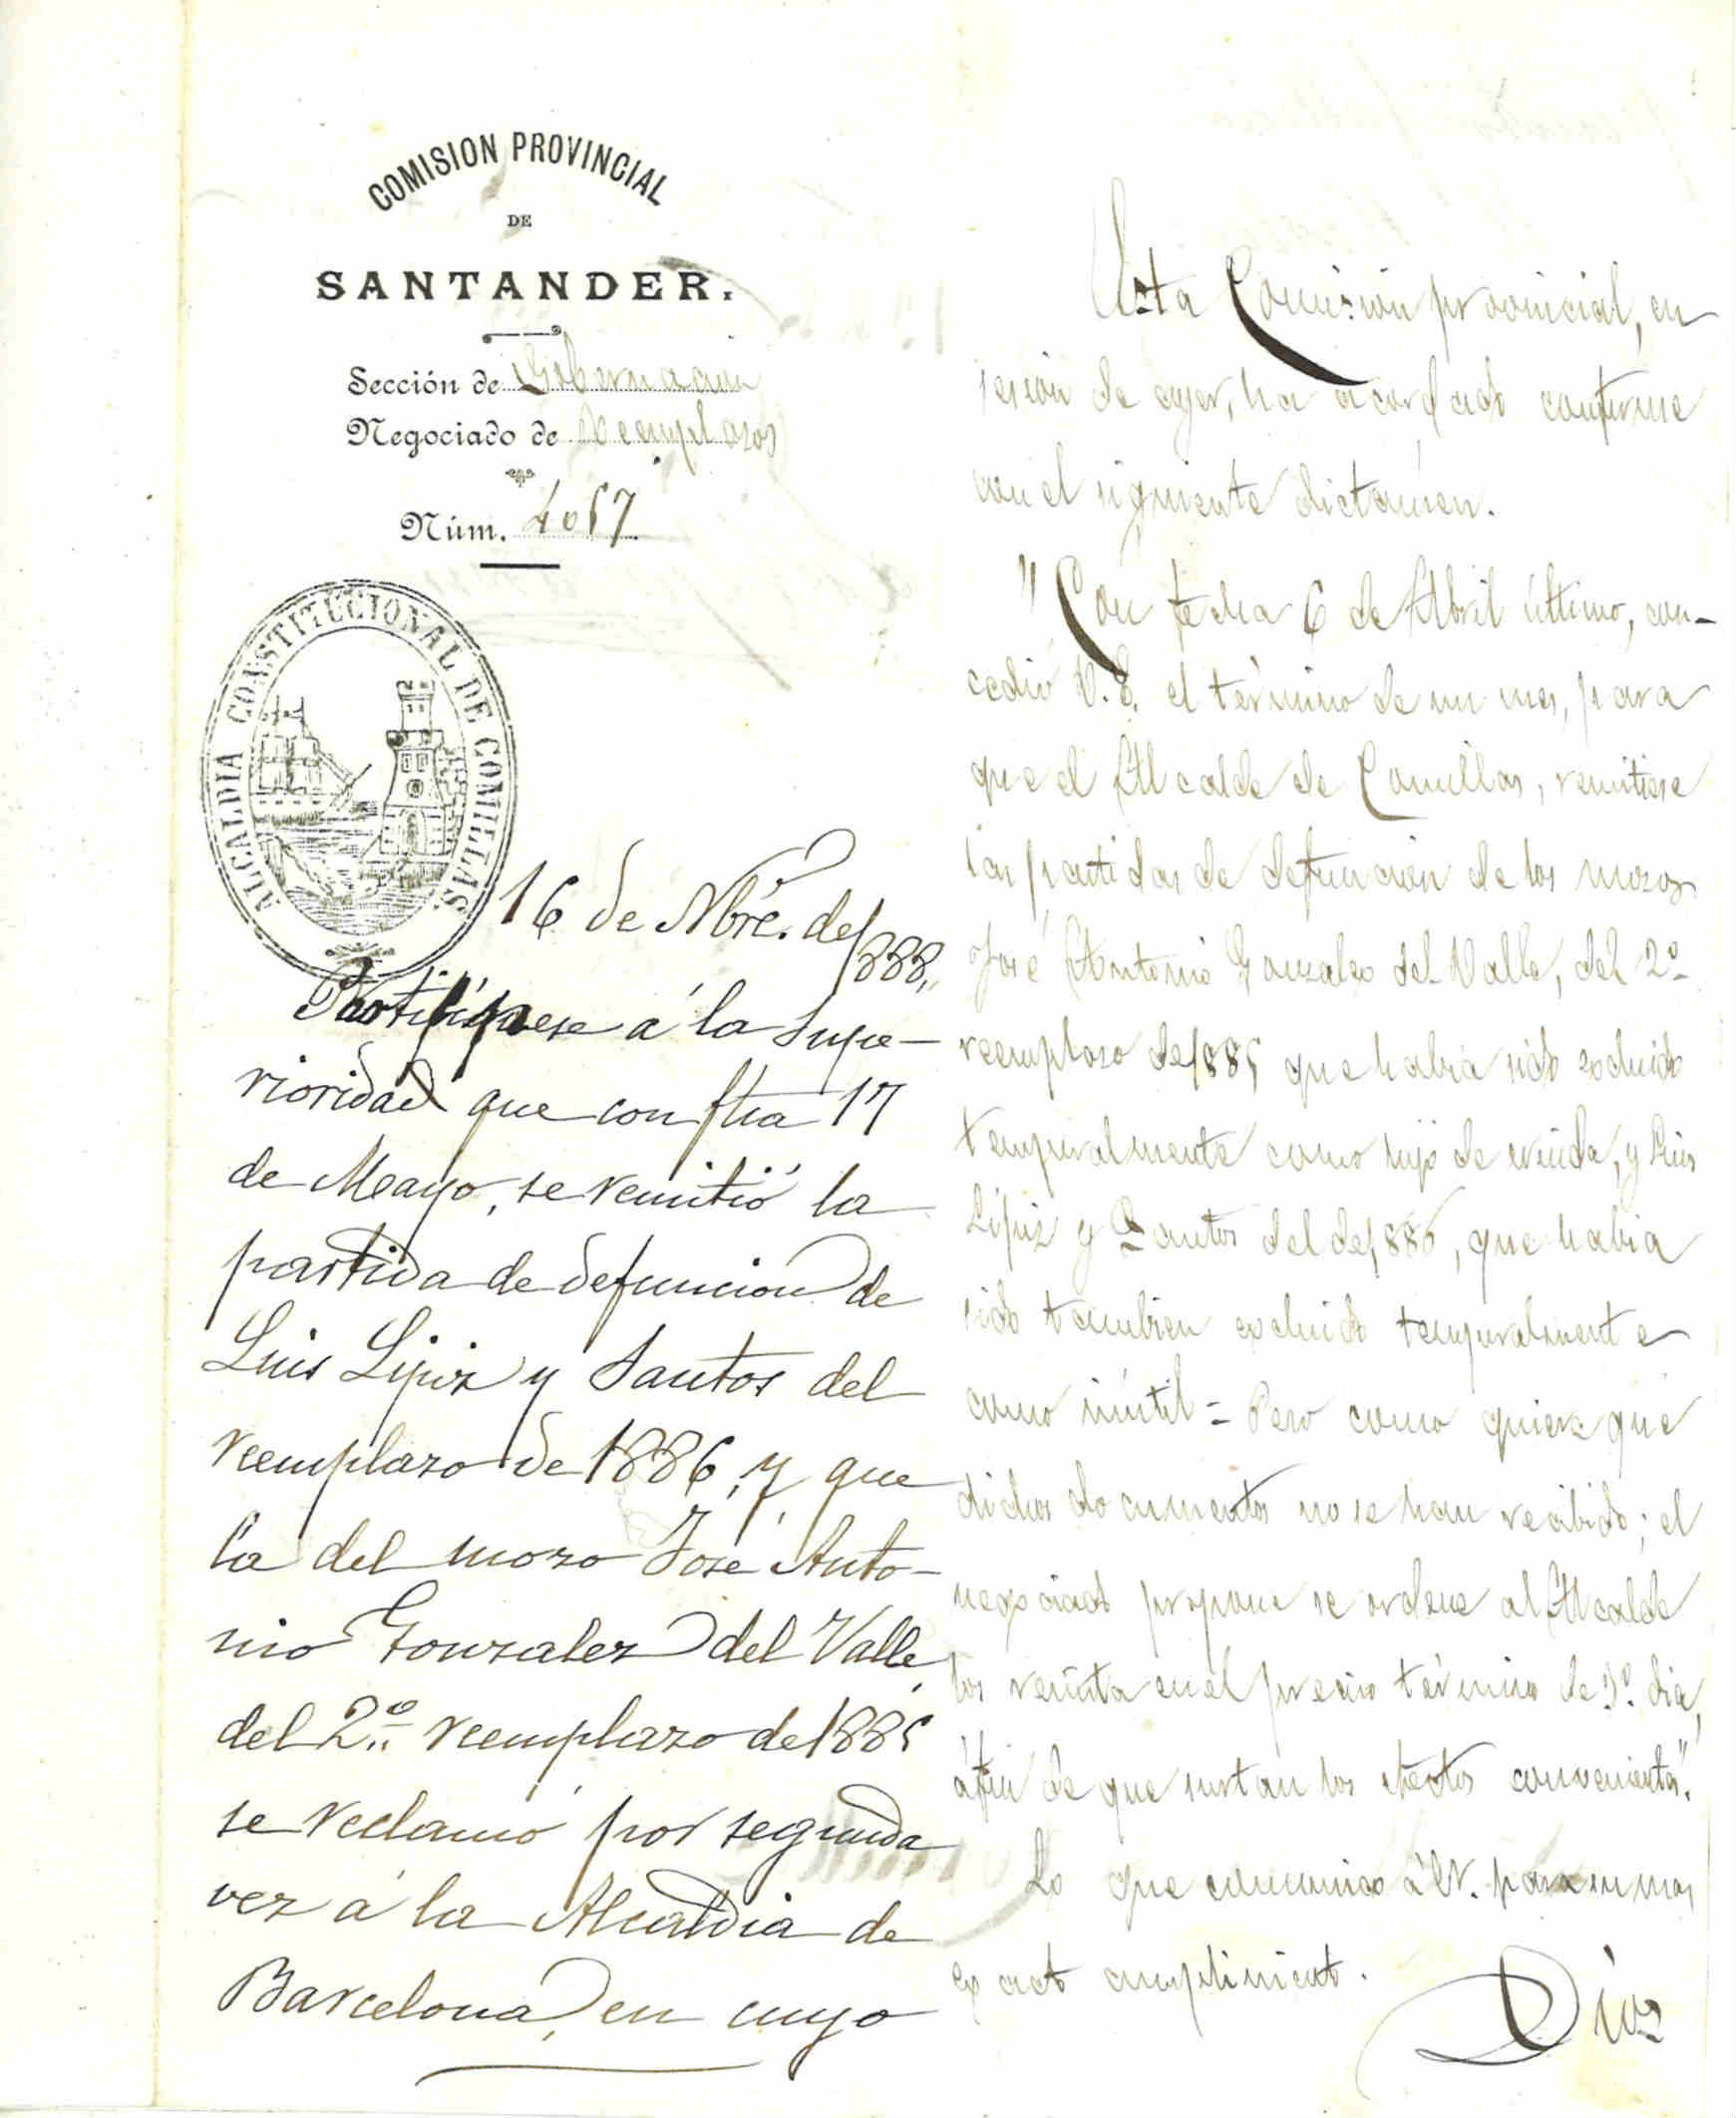 COMISION PROVINCIAL
DE
SANTANDER.
Sección de Gobernacion
Negociado de Reemplazos
Núm. 4057
ALCALDIA CONSTITUCIONAL DE COMILLAS
16 de Nbre. de 1888,,
Participese á la Supe-
rioridad que con fha 17
de Mayo, se remitió la
partida de defuncion de
Luis Lipiz y Santos del
reemplazo de 1886, y que
la del mozo José Anto-
nio Gonzalez del Valle,
del 2.º reemplazo de 1885
se reclamó por segunda
vez á la Alcaldia de
Barcelona, en cuyo
Esta Comision provincial, en
sesion de ayer, ha acordado conforme
con el siguiente dictámen.
"Con fecha 6 de Abril último, con-
cedió V.S. el término de un mes, para
que el Alcalde de Comillas, remitiese
las partidas de defuncion de los mozos
José Antonio Gonzalez del Valle, del 2º
reemplazo de 1885 que habia sido excluido
temporalmente como hijo de viuda, y Luis
Lipiz y Santos del de 1886, que habia
sido tambien excluido temporalmente
como inútil = Pero como quiera que
dichos documentos no se han recibido; el
negociado propone se ordene al Alcalde
los remita en el preciso término de 3º dia,
á fin de que surtan los efectos convenientes".
Lo que comunico á V. para su mas
exacto cumplimiento.
Dios